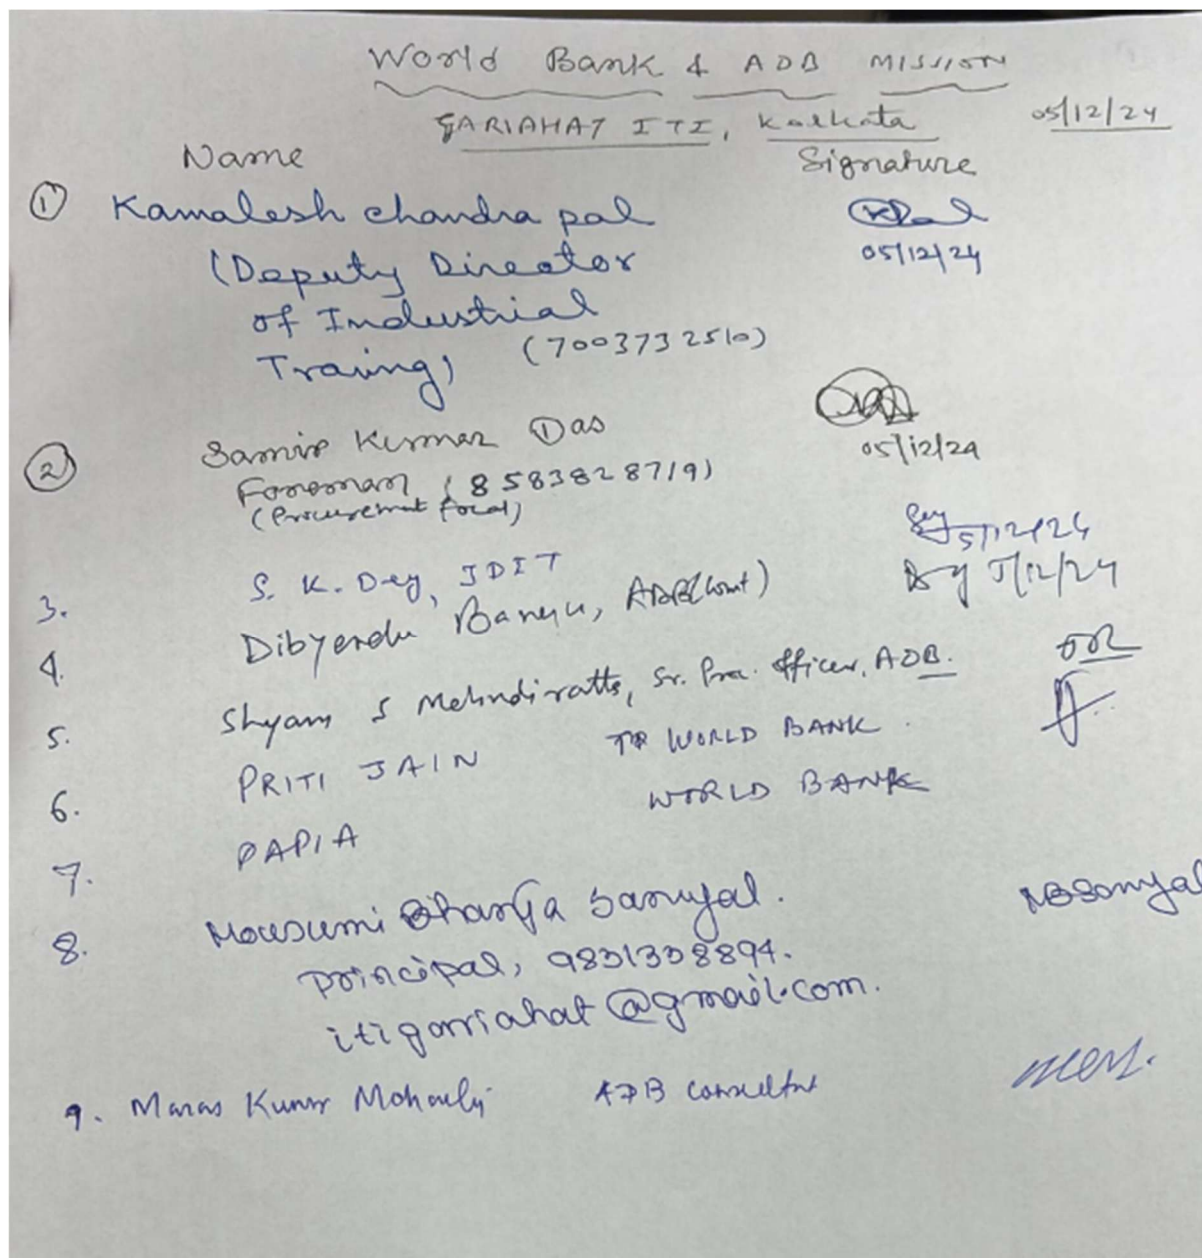 World Bank & ADB MISSION
GARIAHAT ITI, Kolkata 05/12/24
Name Signature
① Kamalesh chandra pal KPal
(Deputy Director 05/12/24
of Industrial
Traning) (7003732510)
② Samir Kumar Das
Foreman (8583828719) 05/12/24
(Procurement focal)
3. S. K. Dey, JDIT 5/12/24
4. Dibyendu 5/12/24
5. Shyam S Mehndiratta, Sr. Proc. Officer, ADB.
6. PRITI JAIN WORLD BANK
7. PAPIA WORLD BANK
8. Mousumi Bhanja Sanyal. MBSanyal
principal, 9831338894.
itigariahat@gmail.com.
9. Manas Kumar ADB Consultant